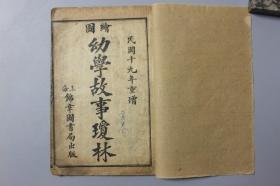 民國十九年重增
繪圖
幼學故事瓊林
上海
錦章圖書局出版